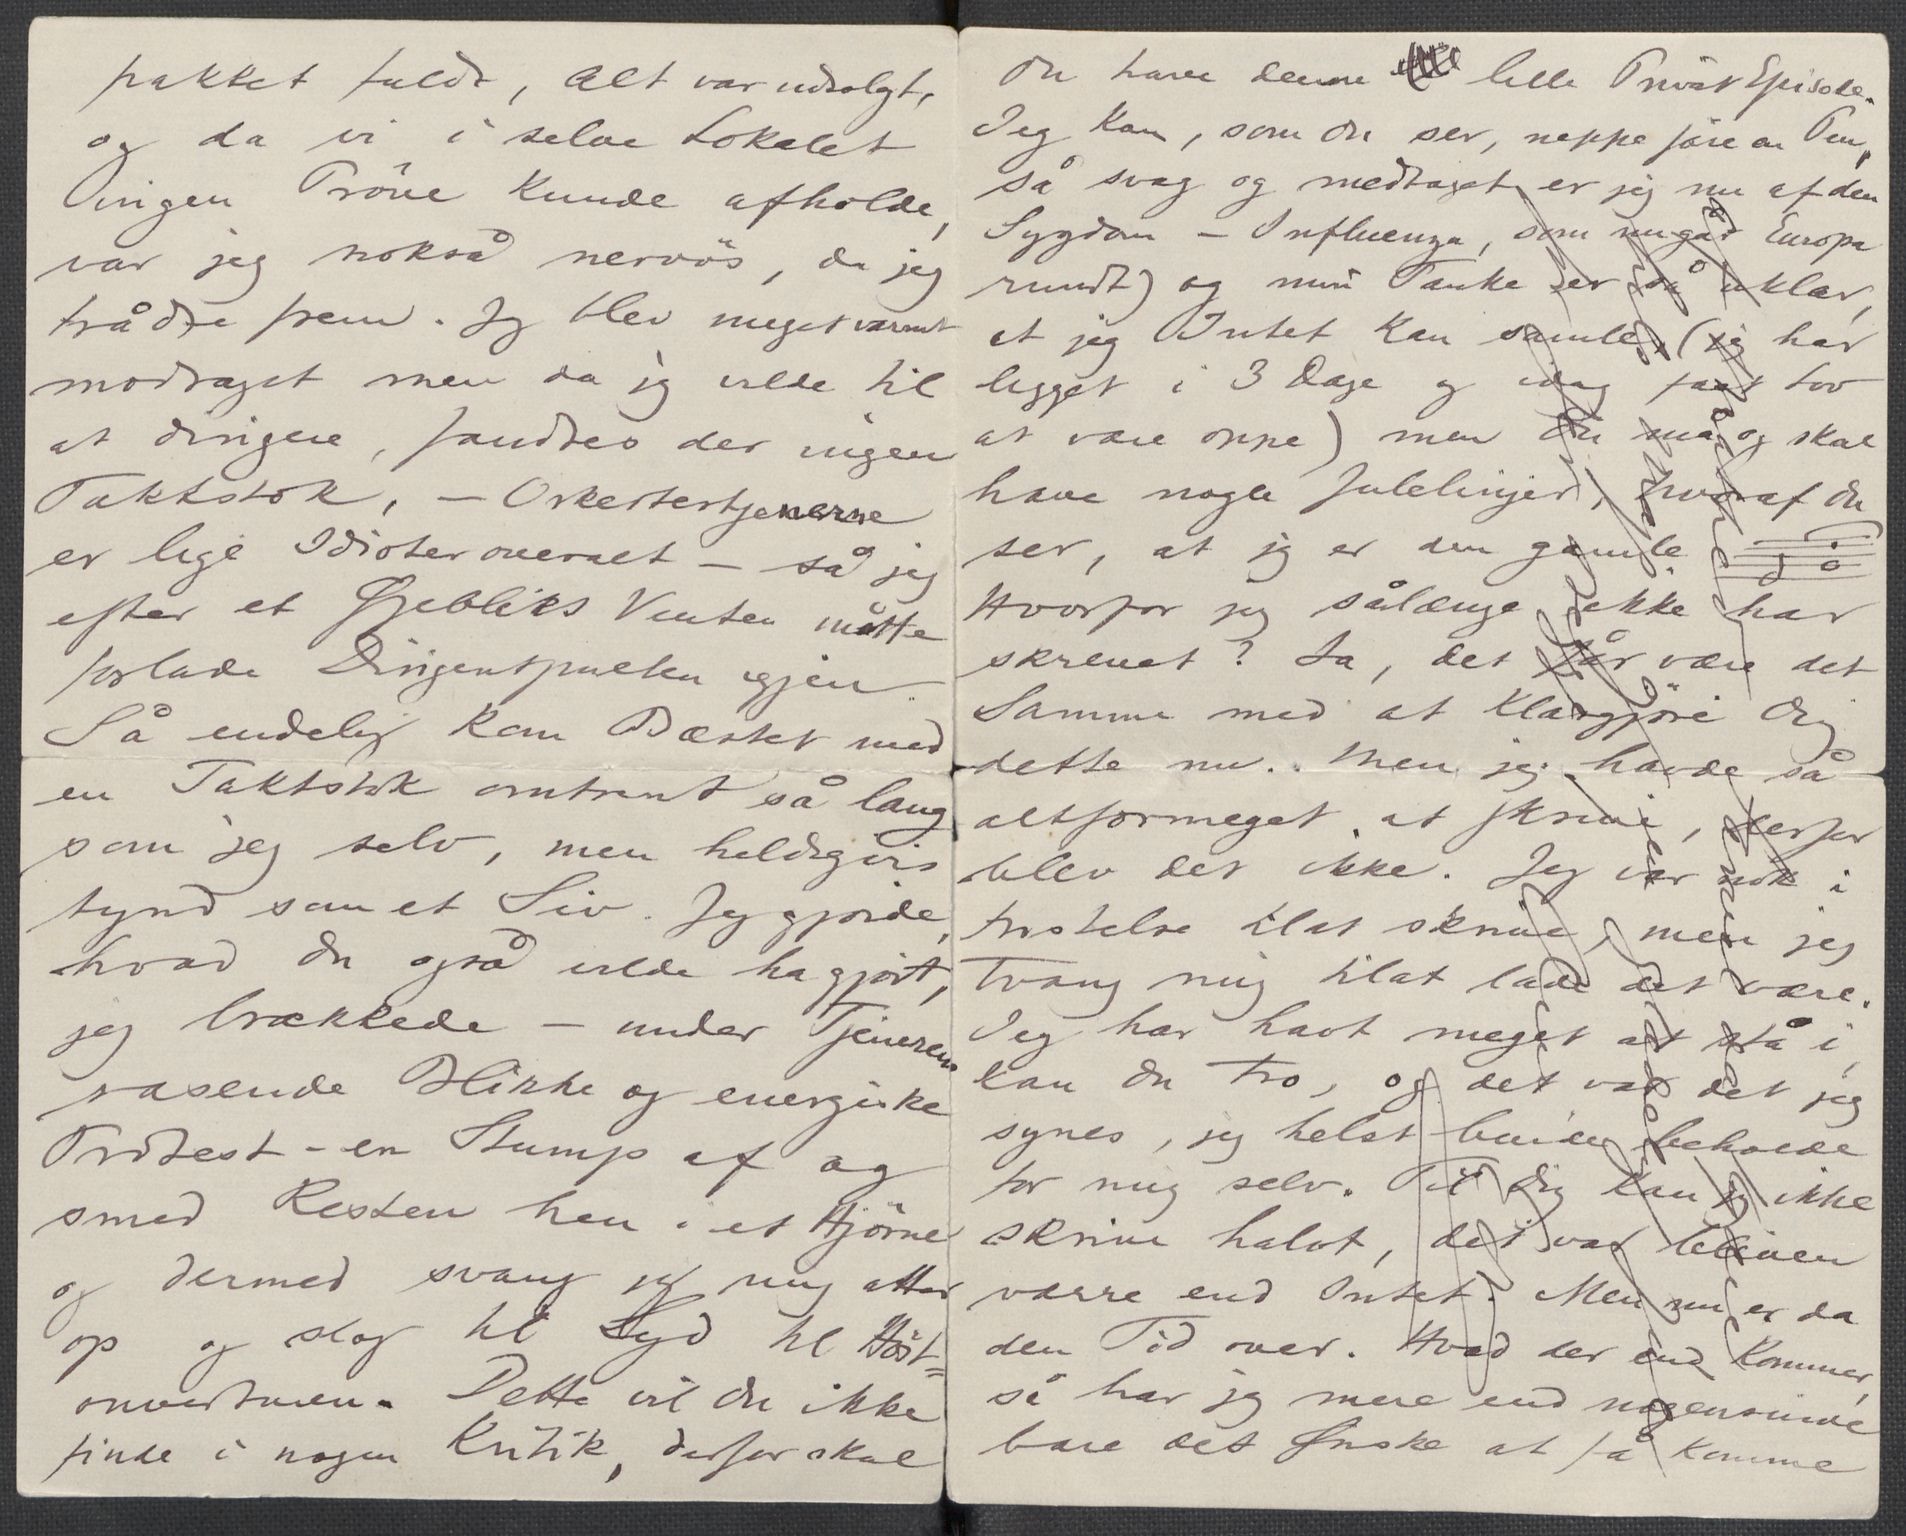 pakket fuldt, Alt var udsolgt,
og da vi i selve Lokalet
ingen Pröve kunde afholde,
var jeg nokså nervös, da jeg
trådte frem. Jeg blev meget varmt
modtaget men da jeg vilde til
at dirigere, fandtes der ingen
Taktstok, – Orkestertjenerne
er lige Idioter overalt – så jeg
efter et Øjebliks Venten måtte
forlade Dirigentpulten igjen.
Så endelig kom Bæstet med
en Taktstok omtrent så lang
som jeg selv, men heldigvis
tynd som et Siv. Jeg gjorde,
hvad Du også vilde ha gjort,
jeg brækkede – under Tjenerens
rasende Blikke og energiske
Protest – en Stump af og
smed Resten hen i et Hjörne
og dermed svang jeg mig atter
op og slog til Lyd til Höst-
ouverturen. Dette vil Du ikke
finde i nogen Kritik, derfor skal
Du have denne lille Privat Episode.
Jeg kan, som Du ser, neppe före en Pen,
så svag og medtaget er jeg nu af den
Sygdom – Influenza, som nu går Europa
rundt) og min Tanke er så uklar,
at jeg Intet kan samle, (jeg har
ligget i 3 Dage og idag faat Lov
at være oppe) men Du må og skal
have nogle Julelinjer, hvoraf Du
ser, at jeg er den gamle.
Hvorfor jeg sålænge ikke har
skrevet? Ja, det får være det
Samme med at klargjöre Dig
dette nu. Men jeg havde så
altformeget at skrive, derfor
blev det ikke. Jeg var nok i
fristelse tilat skrive, men jeg
tvang mig tilat lade det være.
Jeg har havt meget at stå i,
kan Du tro, og det var det jeg
synes, jeg helst burde beholde
for mig selv. Til Dig kan jeg ikke
skrive halvt, det var bleven
værre end Intet. Men nu er da
den Tid over. Hvad der end kommer,
så har jeg mere end nogensinde
bare det Ønske at få komme